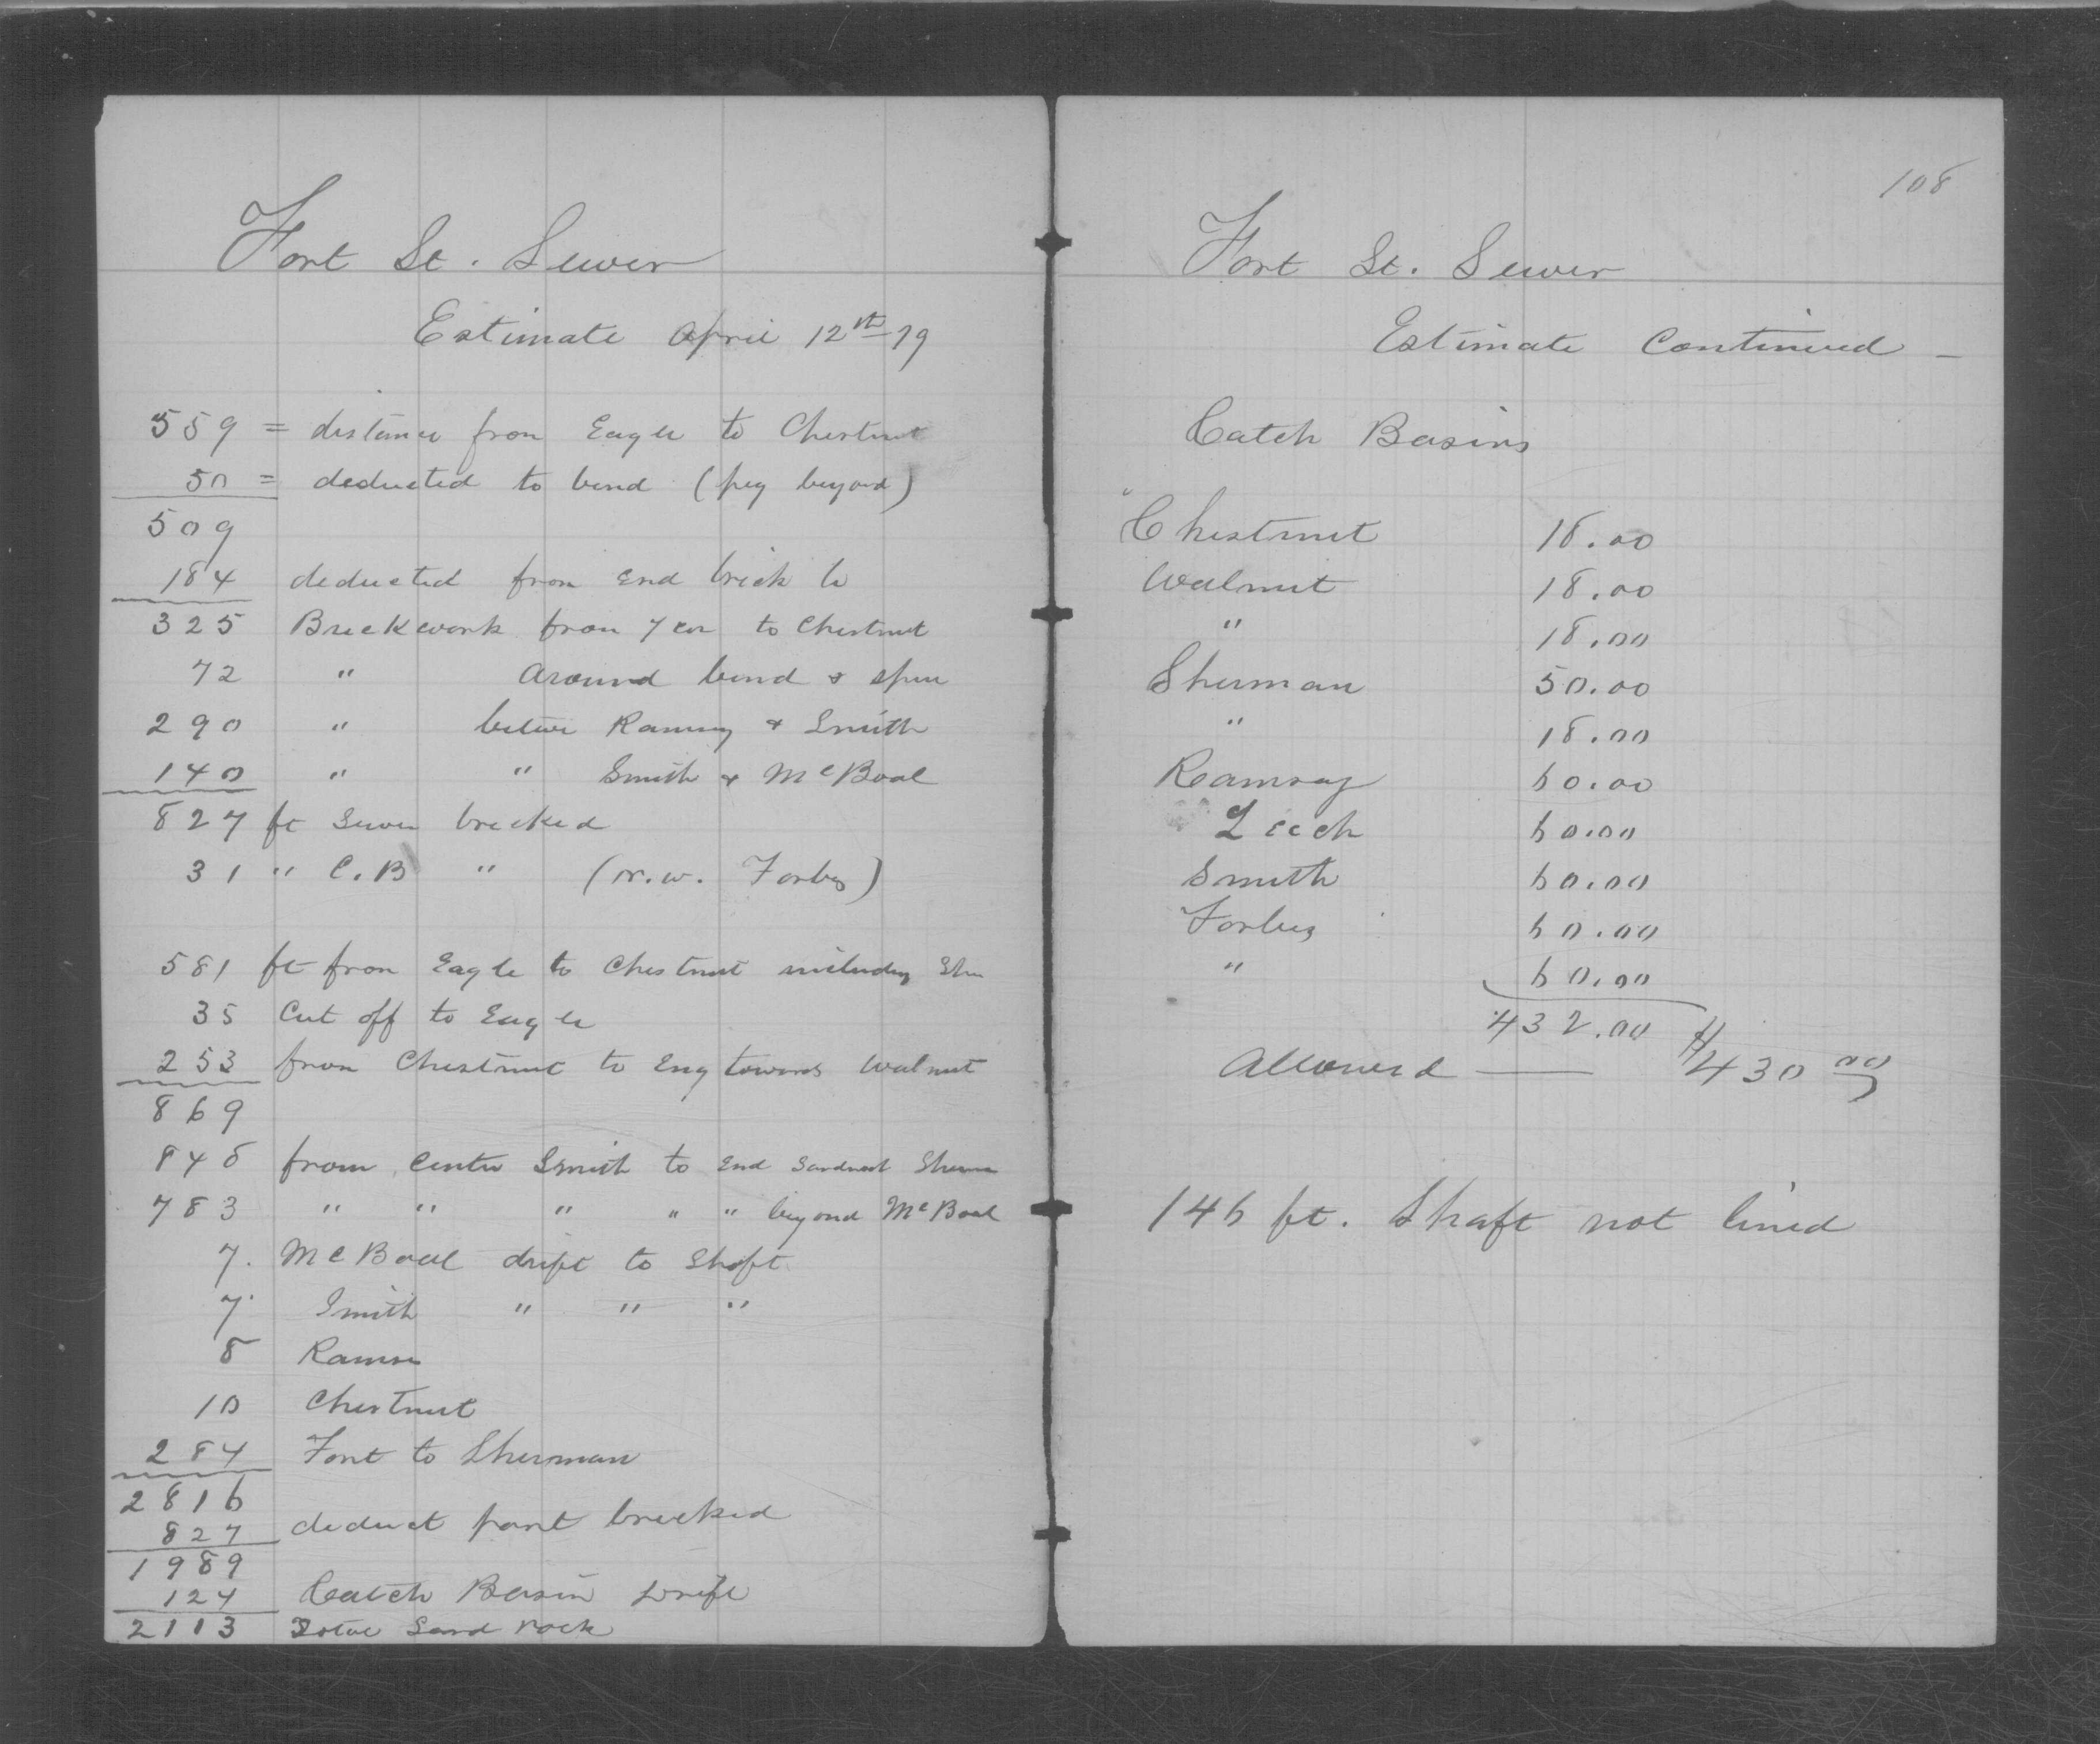 Fort St. Sewer
Estimate April 12th 79
559 = distance from Eagle to Chestnut
50 = deducted to bend (peg beyond)
509
184 deducted from end brick to
325 Brickwork from to Chestnut
72 " Around bend & spur
290 " betwe Ramsey & Smith
140 " " Smith & McBoal
827 ft Sewer bricked
31 " C.B " (N.W. Forbes)
581 ft from Eagle to Chestnut including
35 Cut off to Eagle
253 from Chestnut to Eng towards Walnut
869
848 from Center Smith to End Sherm
783 " " " " " beyond McBoal
7. McBoal drift to Shaft
7 Smith " " "
8 Ramse
10 Chestnut
284 Fort to Sherman
2816
827 deduct part bricked
1989
124 Catch Basin Drift
2113 Total Sand rock
108
Fort St. Sewer
Estimate Continued —
Catch Basins
Chestnut 18.00
Walnut 18.00
" 18.00
Sherman 50.00
" 18.00
Ramsay 60.00
Leech 60.00
Smith 60.00
Forbes 60.00
" 60.00
432.00
Allowed — $430 00
146 ft. Shaft not lined